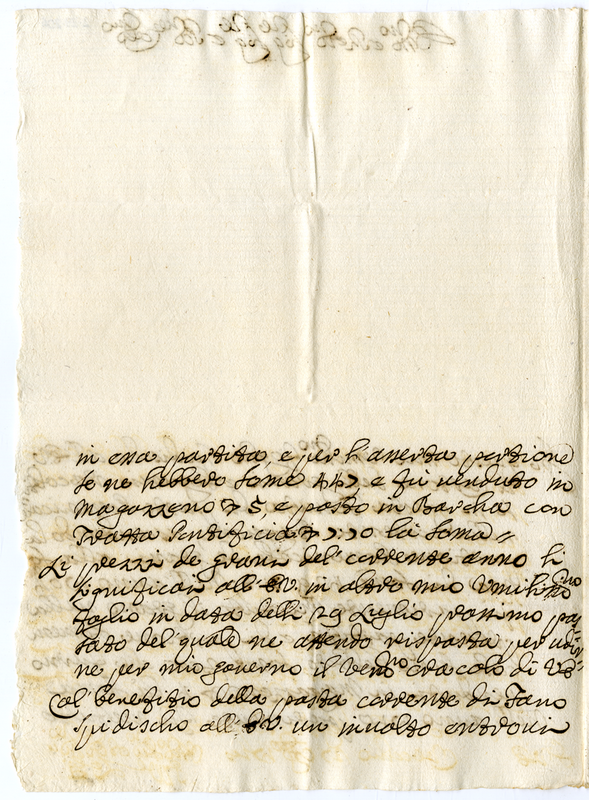 in essa partita, e per l'asserta portione
se ne hebbero some 447 e fù venduto in
Magazzeno 5, e posto in Barcha con
Tratta Pontificia la soma
Li prezzi de grani del corrente anno li
significai all' in altro mio Umiliss.mo
foglio in data delli 29 Luglio prossimo pas
sato del quale ne attendo risposta per
ne per mio governo il Ven.do oracolo di
Col benefitio della posta corrente di Fano
Spedischo all' un involto entrovi